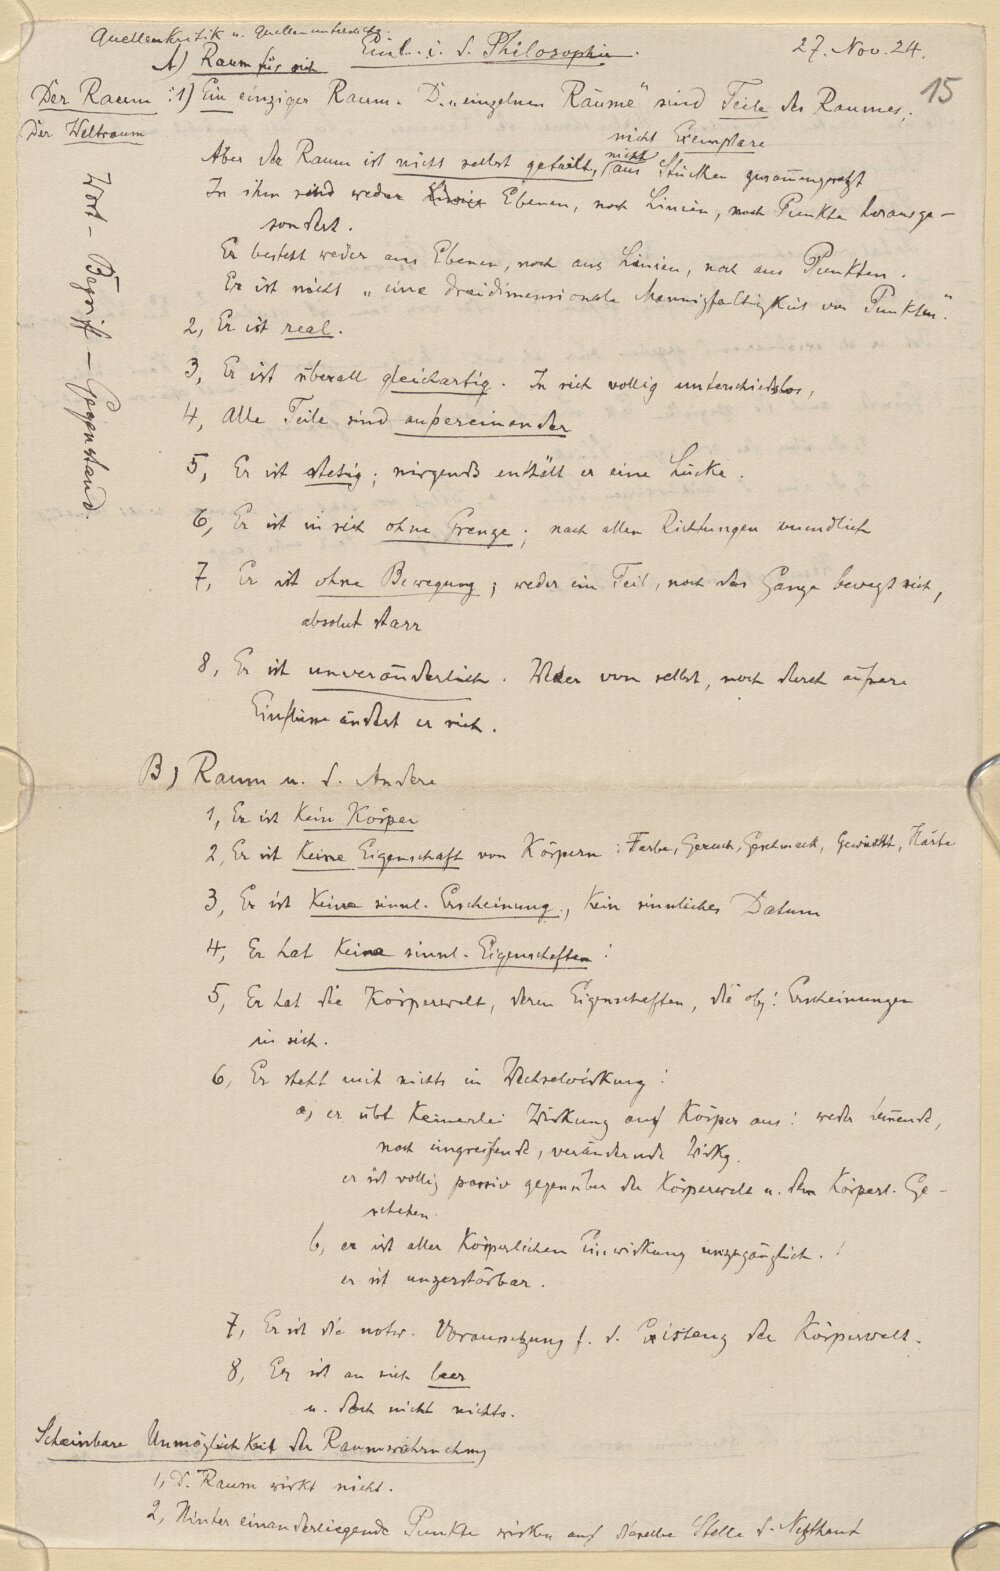 Quellenkritik u. Quellenunterricht.
Einl. i. d. Philosophie.
27. Nov. 24.
15
A) Raum für sich
Der Raum : 1) Ein einziger Raum. D. „einzelnen Räume“ sind Teile des Raumes,
Der Weltraum
nicht Exemplare
Aber der Raum ist nicht selbst geteilt, nicht aus Stücken zusammengesetzt
In ihm sind weder Ebenen, noch Linien, noch Punkte herausge-
sondert.
Er besteht weder aus Ebenen, noch aus Linien, noch aus Punkten.
Er ist nicht „eine dreidimensionale Mannigfaltigkeit von Punkten“.
2, Er ist real.
3, Er ist überall gleichartig. In sich völlig unterschiedslos,
4, Alle Teile sind außereinander
5, Er ist stetig; nirgends enthält er eine Lücke.
6, Er ist in sich ohne Grenze; nach allen Richtungen unendlich
7, Er ist ohne Bewegung; weder ein Teil, noch das Ganze bewegt sich,
absolut starr
8, Er ist unveränderlich. Weder von selbst, noch durch äußere
Einflüsse ändert er sich.
Wort – Begriff – Gegenstand.
B) Raum u. d. Andere
1, Er ist kein Körper
2, Er ist keine Eigenschaft von Körpern : Farbe, Geruch, Geschmack, Gewicht, Härte
3, Er ist keine sinnl. Erscheinung, kein sinnliches Datum
4, Er hat keine sinnl. Eigenschaften!
5, Er hat die Körperwelt, deren Eigenschaften, die obj. Erscheinungen
in sich.
6, Er steht mit nichts in Wechselwirkung!
a, er übt keinerlei Wirkung auf Körper aus! weder hemmende,
noch eingreifende, verändernde Wirkg.
er ist völlig passiv gegenüber der Körperwelt u. dem körperl. Ge-
schehen.
b, er ist aller körperlichen Einwirkung unzugänglich.!
er ist unzerstörbar.
7, Er ist die notw. Voraussetzung f. d. Existenz der Körperwelt.
8, Er ist an sich leer
u. doch nicht nichts.
Scheinbare Unmöglichkeit der Raumwahrnehmg
1, D. Raum wirkt nicht.
2, Hintereinanderliegende Punkte wirken auf dieselbe Stelle d. Netzhaut